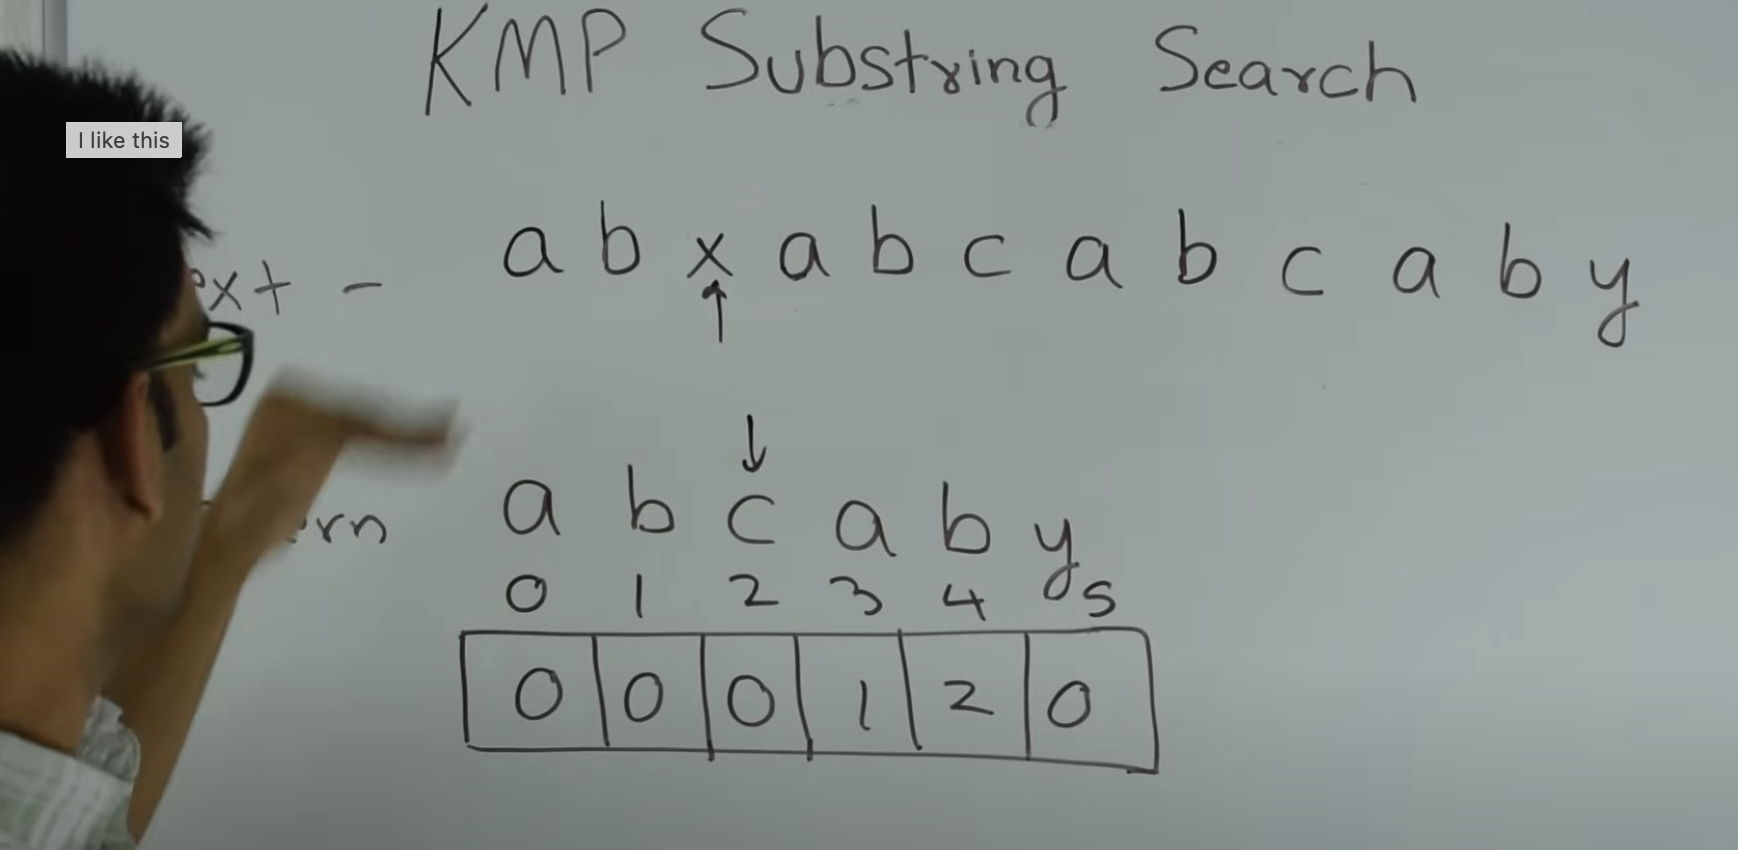 KMP Substring Search
I like this
a b x a b c a b c a b y
a b c a b y
0 1 2 3 4 5
0 0 0 1 2 0